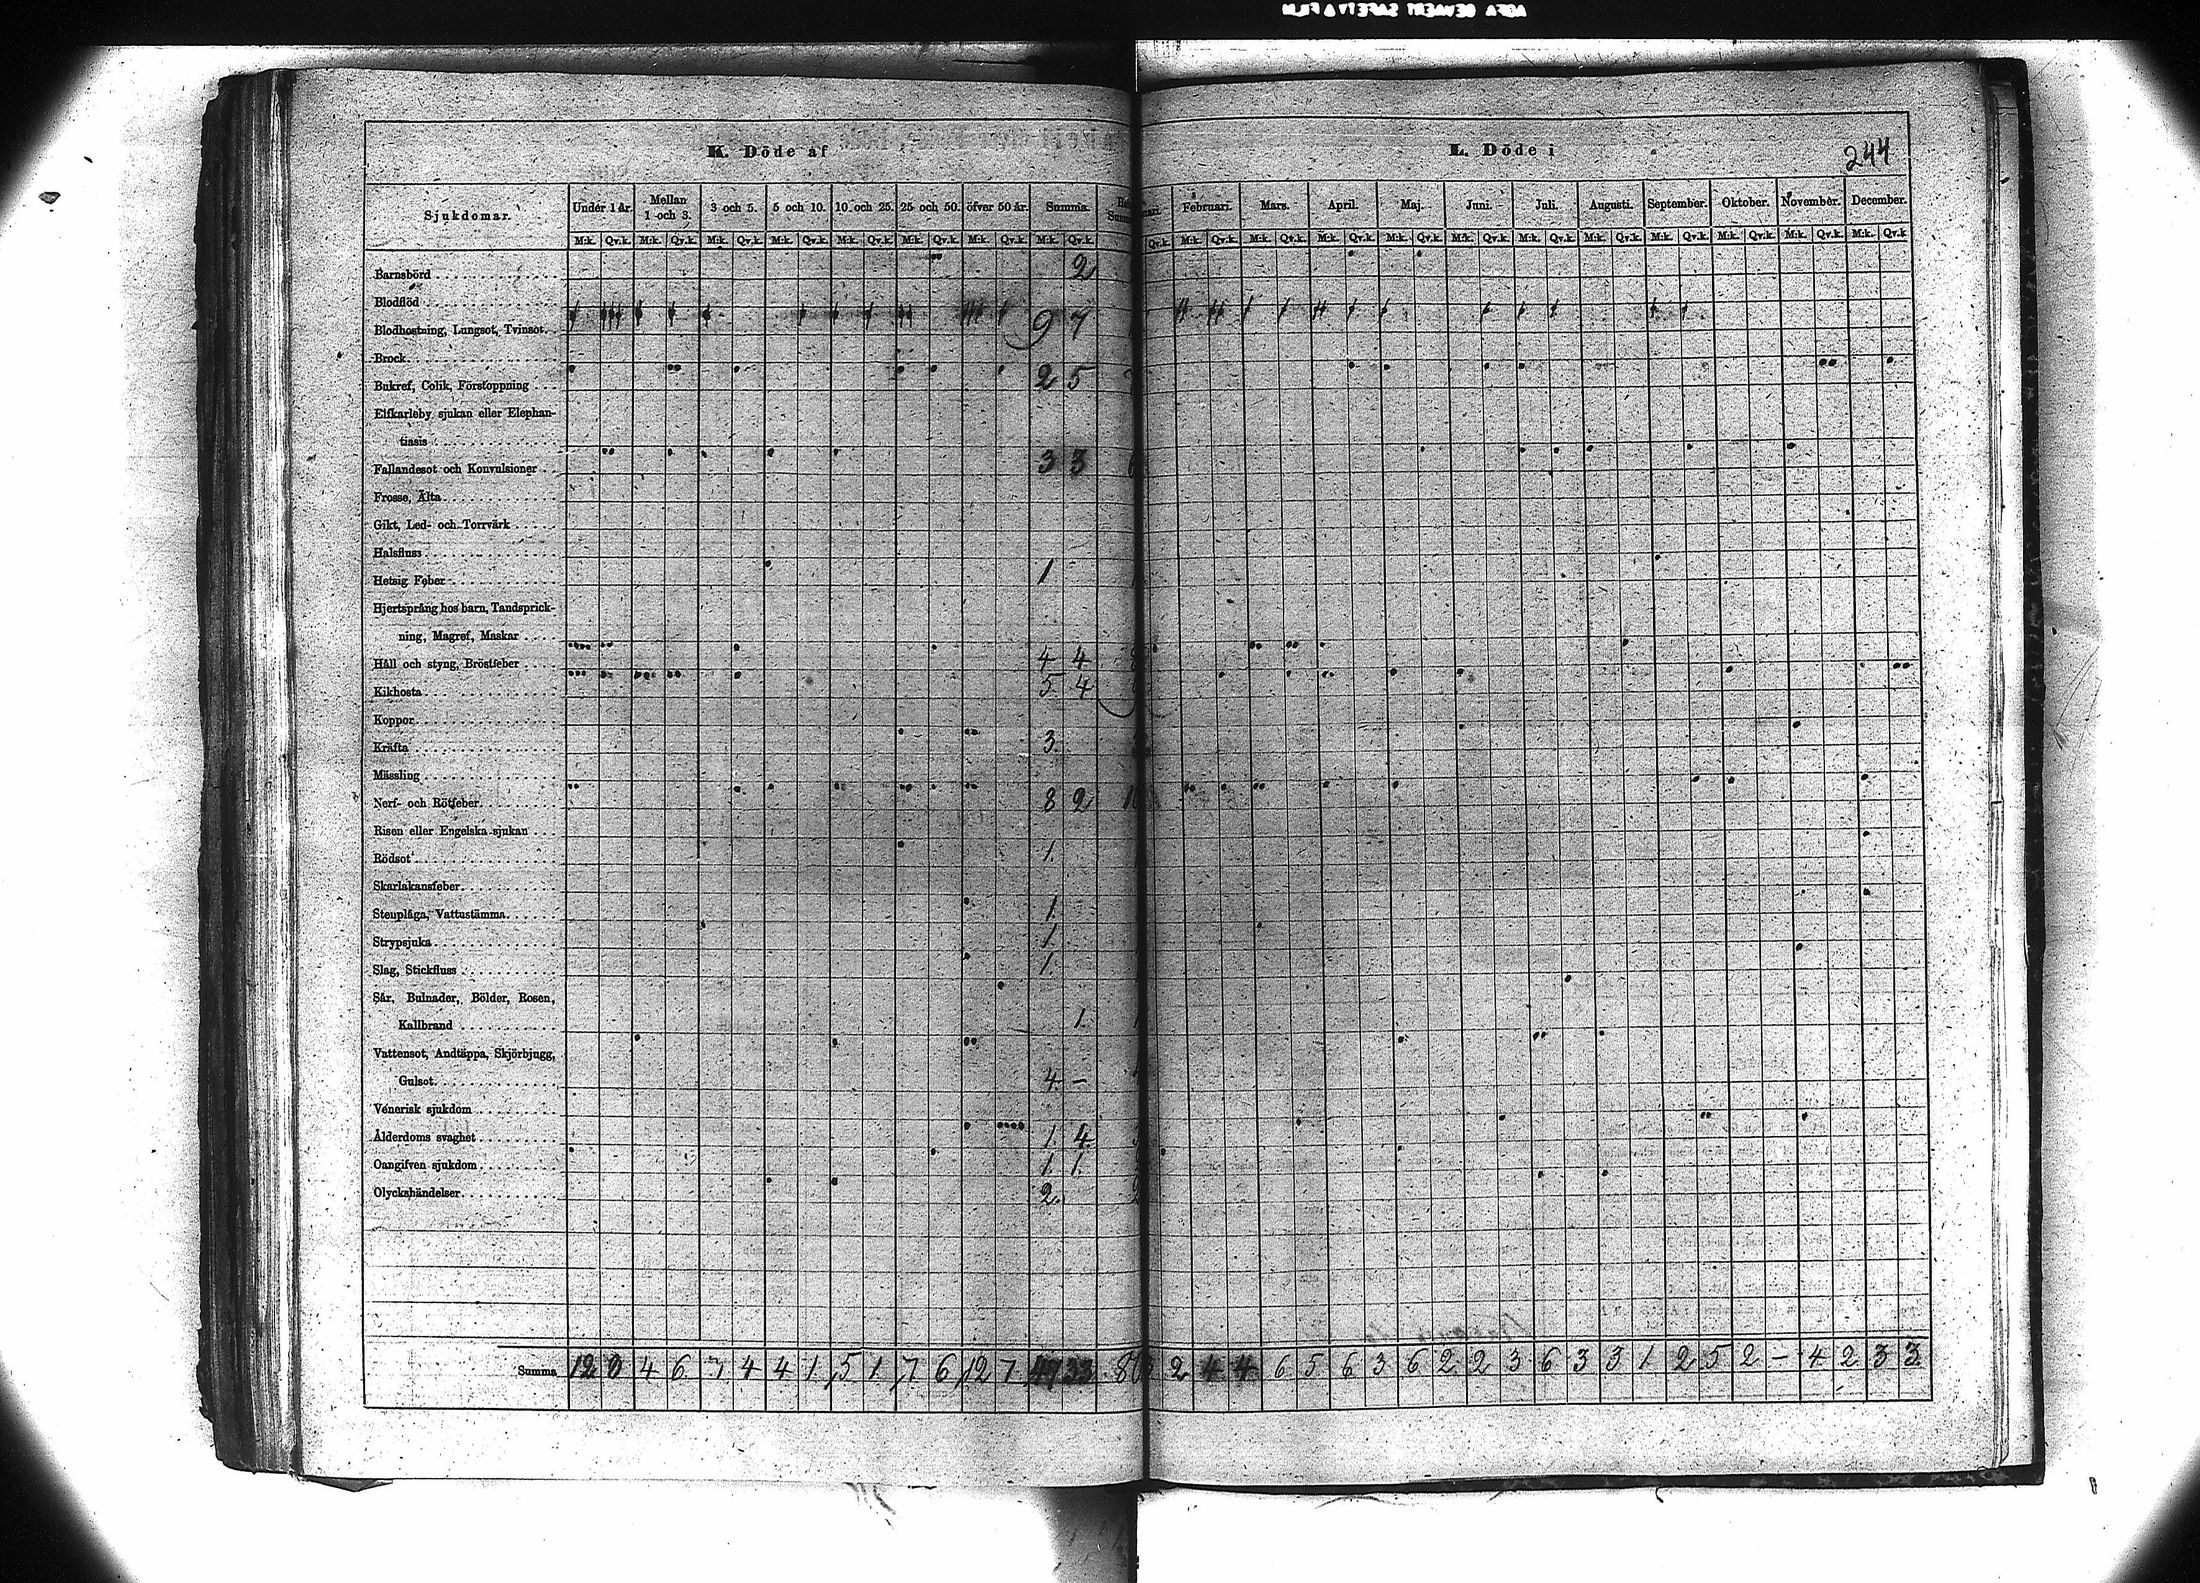 K. Döde af
L. Döde i
244
Sjukdomar. Under 1 år. Mellan 1 och 3. 3 och 5. 5 och 10. 10 och 25. 25 och 50. öfver 50 år. Summa. Februari. Mars. April. Maj. Juni. Juli. Augusti. September. Oktober. November. December.
M:k. Qv.k. M:k. Qv.k. M:k. Qv.k. M:k. Qv.k. M:k. Qv.k. M:k. Qv.k. M:k. Qv.k. M:k. Qv.k. Qv.k. M:k. Qv.k. M:k. Qv.k. M:k. Qv.k. M:k. Qv.k. M:k. Qv.k. M:k. Qv.k. M:k. Qv.k. M:k. Qv.k. M:k. Qv.k. M:k. Qv.k. M:k. Qv.k
Barnsbörd 2
Blodflöd
Blodhostning, Lungsot, Tvinsot. 9 7
Brock
Bukref, Colik, Förstoppning 2 5
Elfkarleby sjukan eller Elephan-
tiasis
Fallandesot och Konvulsioner 3 3
Frosse, Älta
Gikt, Led- och Torrvärk
Halsfluss
Hetsig Feber 1
Hjertsprång hos barn, Tandsprick-
ning, Magref, Maskar
Håll och styng, Bröstfeber 4 4
Kikhosta 5 4
Koppor
Kräfta 3
Mässling
Nerf- och Rötfeber 8 2
Risen eller Engelska sjukan
Rödsot 1.
Skarlakansfeber
Stenplåga, Vattustämma 1.
Strypsjuka 1.
Slag, Stickfluss 1.
Sår, Bulnader, Bölder, Rosen,
Kallbrand 1.
Vattensot, Andtäppa, Skjörbjugg,
Gulsot 4. -
Venerisk sjukdom
Ålderdoms svaghet 1. 4.
Oangifven sjukdom 1. 1.
Olyckshändelser 2.
Summa 12 4 6 4 4 1 5 1 7 6 12 7 47 33 80 2 4 4 6 5 6 3 6 2 2 3 6 3 3 1 2 5 2 - 4 2 3 3